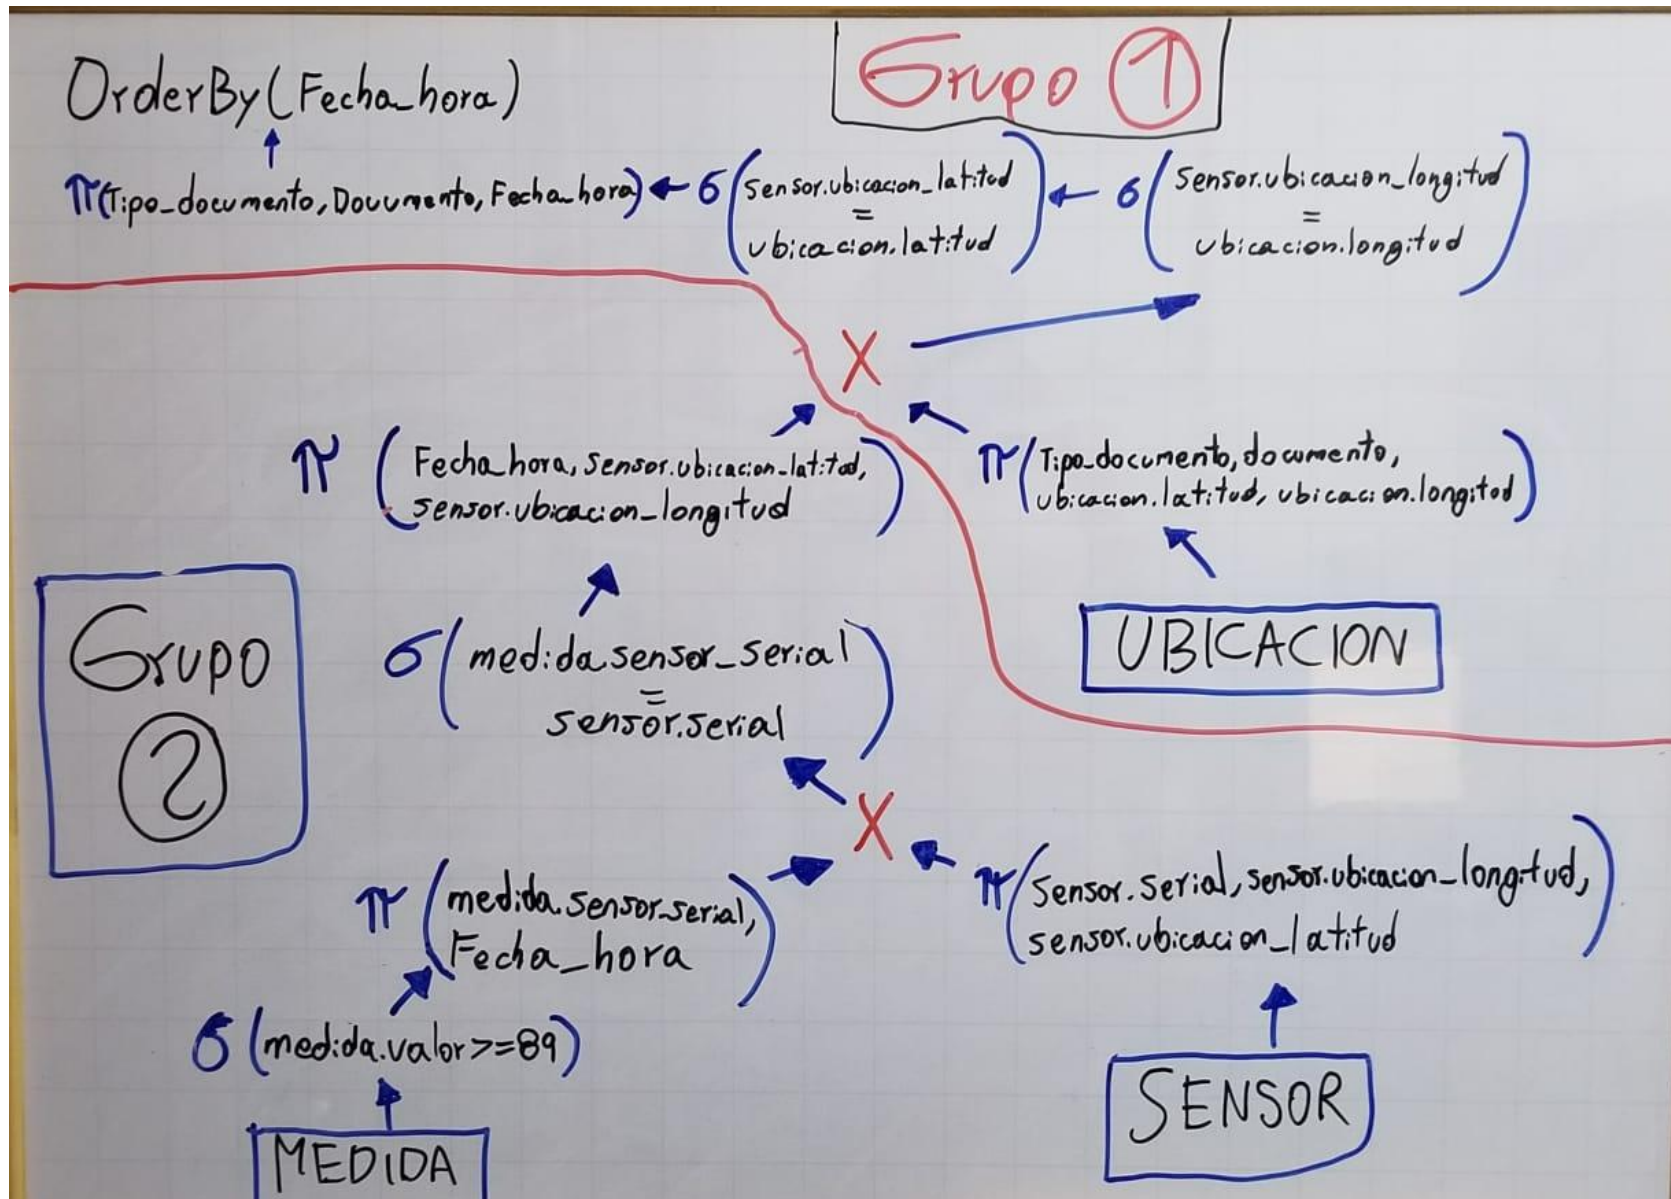 OrderBy(Fecha_hora)
Grupo 1
π(Tipo_documento, Documento, Fecha_hora)
σ(sensor.ubicacion_latitud
=
ubicacion.latitud)
σ(sensor.ubicacion_longitud
=
ubicacion.longitud)
X
π(Fecha_hora, sensor.ubicacion_latitud,
sensor.ubicacion_longitud)
π(Tipo_documento, documento,
ubicacion.latitud, ubicacion.longitud)
Grupo
2
σ(medida.sensor_serial
=
sensor.serial)
UBICACION
X
π(medida.sensor_serial,
Fecha_hora)
π(sensor.serial, sensor.ubicacion_longitud,
sensor.ubicacion_latitud)
σ(medida.valor>=89)
SENSOR
MEDIDA